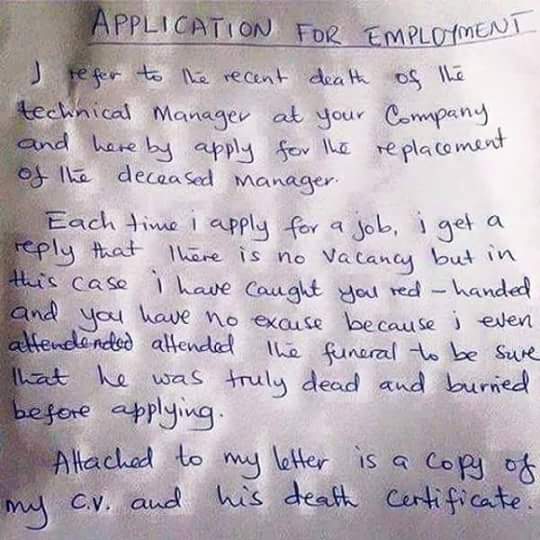 APPLICATION FOR EMPLOYMENT
I refer to the recent death of the
technical Manager at your Company
and here by apply for the replacement
of the deceased manager.
Each time i apply for a job, i get a
reply that there is no vacancy but in
this case i have caught you red-handed
and you have no excuse because i even
attended the funeral to be sure
that he was truly dead and burried
before applying.
Attached to my letter is a copy of
my C.V. and his death certificate.